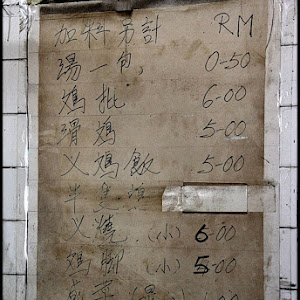 加料另計 RM
湯一包, 0-50
鸡批 6-00
滑鸡 5-00
义鸡飯 5-00
半
义燒 (小) 6-00
鸡脚 (小) 5-00